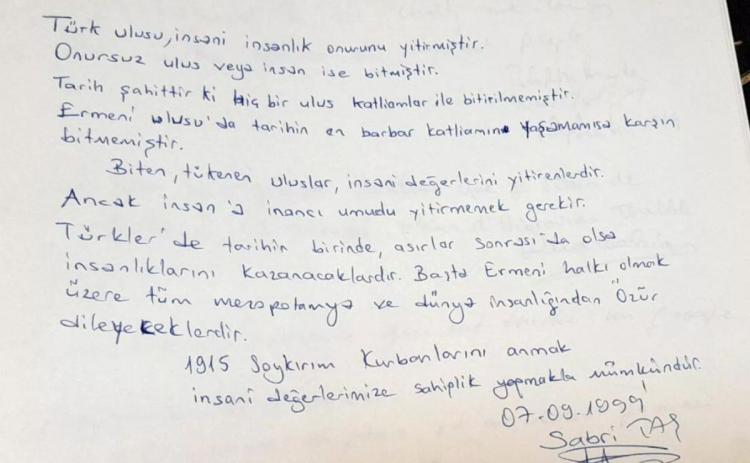 Türk ulusu, insani insanlık onurunu yitirmiştir.
Onursuz ulus veya insan ise bitmiştir.
Tarih şahittir ki hiç bir ulus katliamlar ile bitirilmemiştir.
Ermeni ulusu'da tarihin en barbar katliamını yaşamamısa karşın
bitmemiştir.
Biten, tükenen uluslar, insani değerlerini yitirenlerdir.
Ancak insan'a inancı umudu yitirmemek gerekir.
Türkler'de tarihin birinde, asırlar sonrası'da olsa
insanlıklarını kazanacaklardır. Başta Ermeni halkı olmak
üzere tüm mezopotamya ve dünya insanlığından Özür
dileyeceklerdir.
1915 Soykırım Kurbanlarını anmak
insani değerlerimize sahiplik yapmakla mümkündür.
07.09.1999
Sabri TAŞ